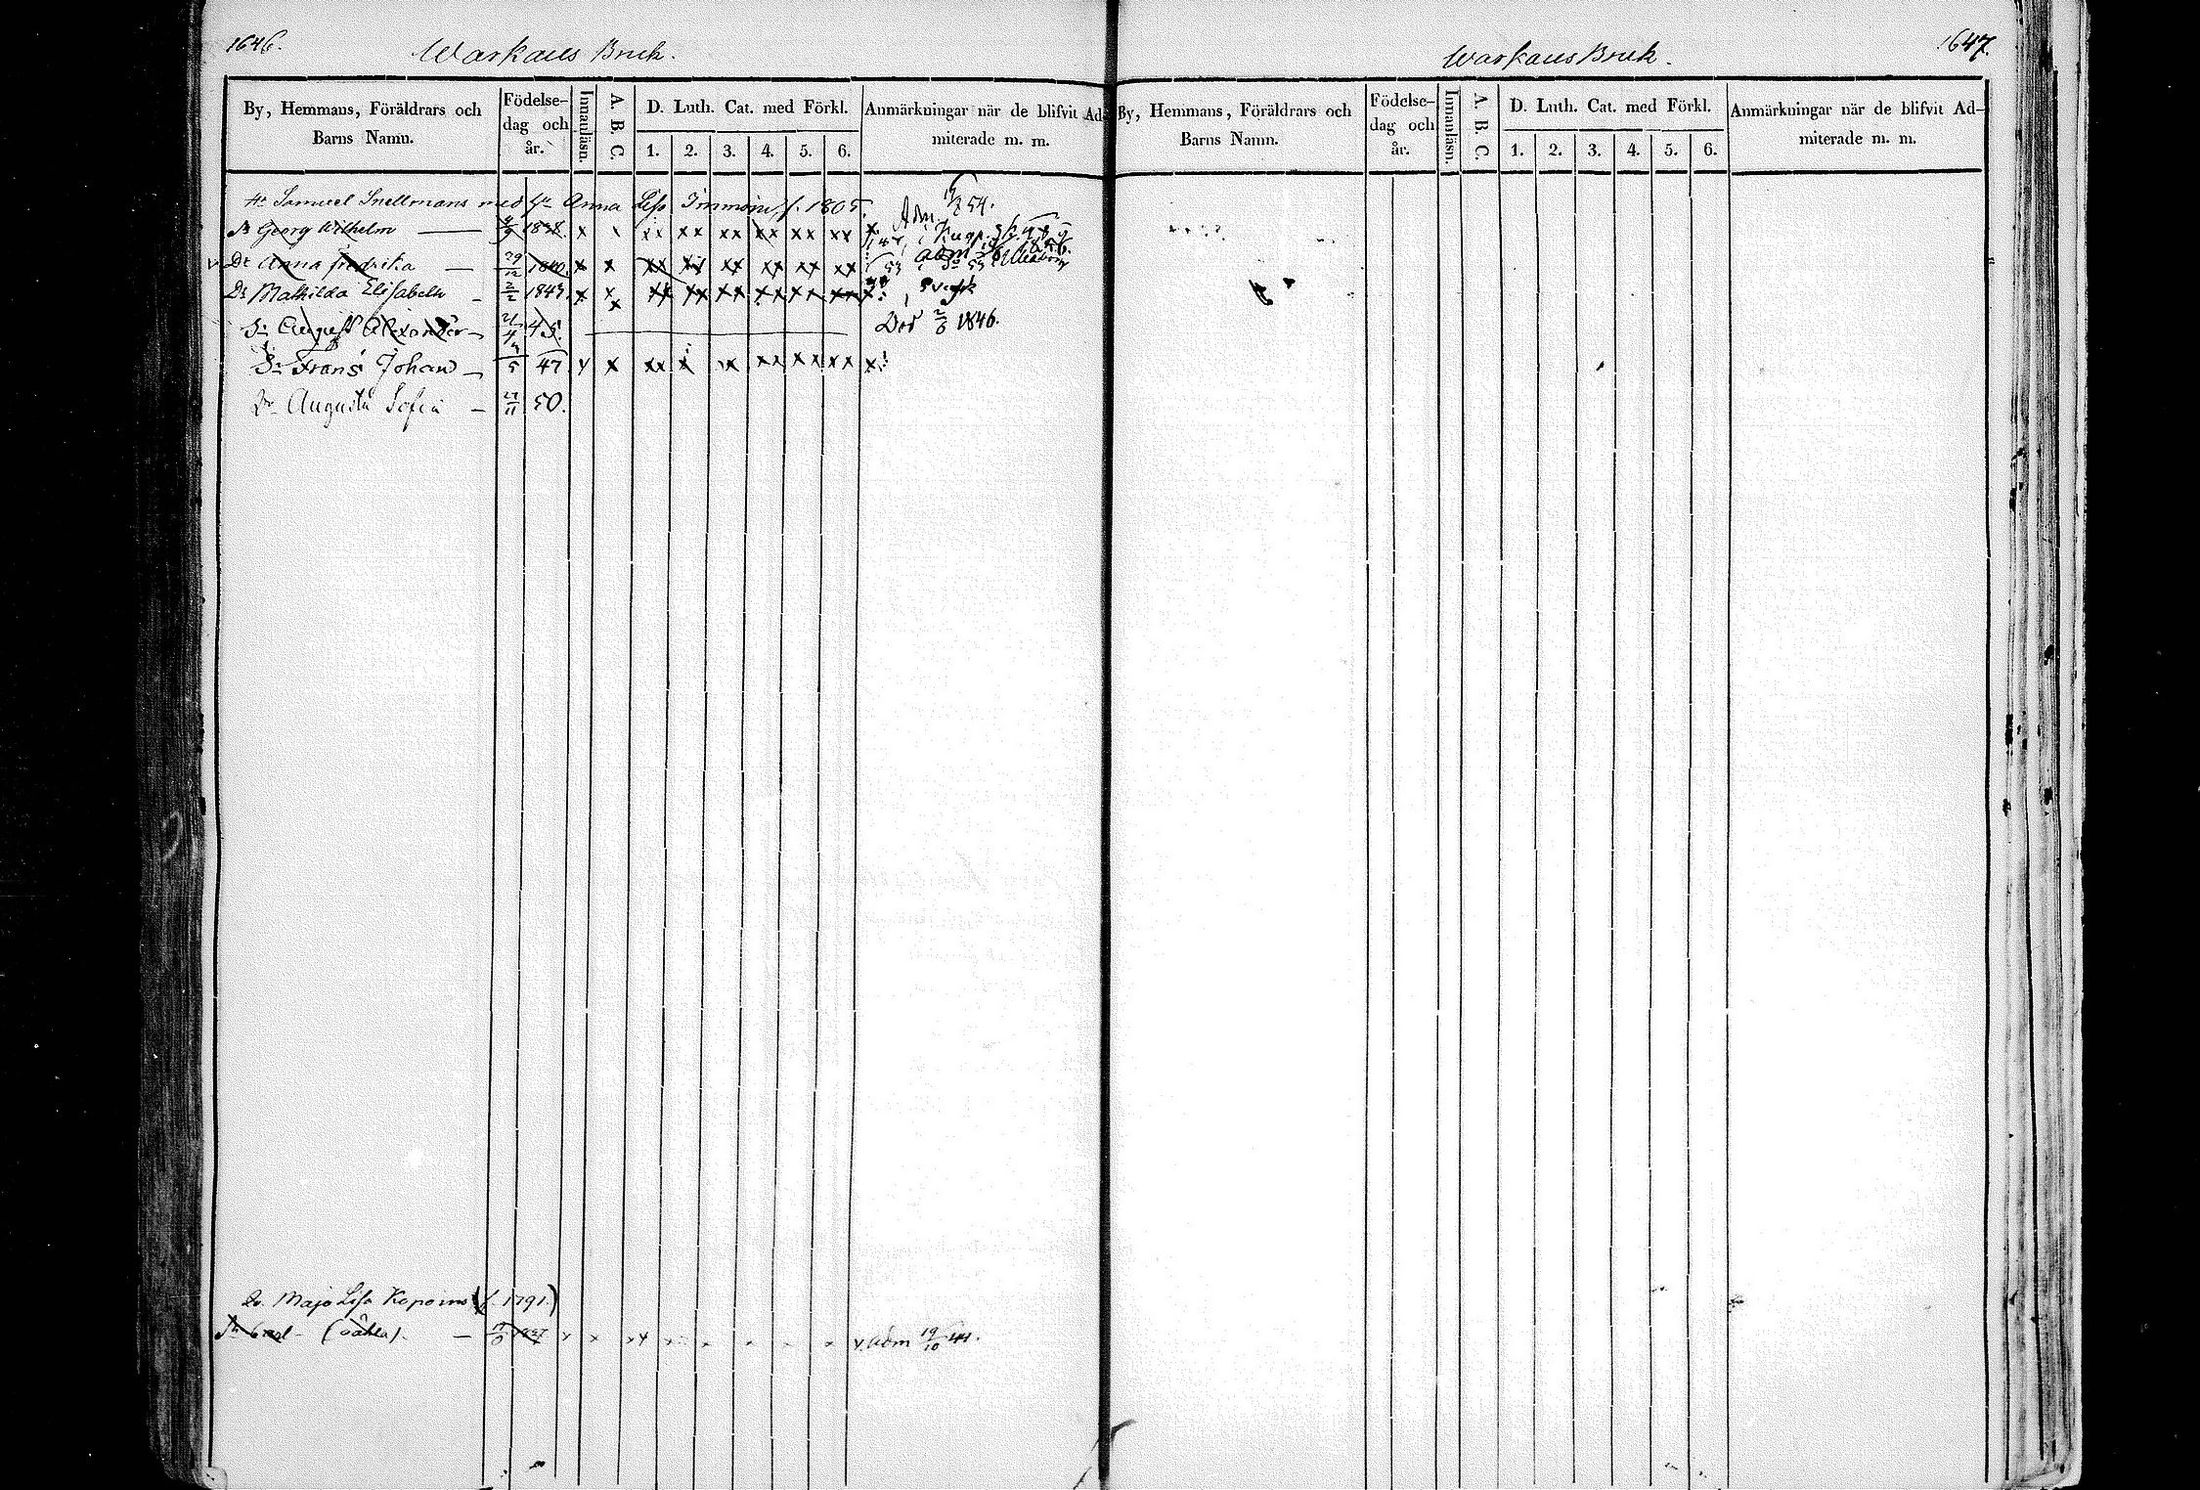 1646.
Warkaus Bruk.
By, Hemmans, Föräldrars och Barns Namn.
Födelse-dag och år.
Innanläsn.
A. B. C.
D. Luth. Cat. med Förkl.
1. 2. 3. 4. 5. 6.
Anmärkningar när de blifvit Admiterade m. m.
Hr Samuel Snellmans med Hu Anna Lisa f. 1805. 54.
Sn Georg Wilhelm 1838. x x xx xx xx xx xx Adm.
Dr Anna Fredrika 29/12 1840. x x xx xx xx xx xx Adm 1856.
Dr Mathilda Elisabeth 2/2 1843. x x xx xx xx xx xx
Sn August Alexander 21/4 45. Död 2/6 1846.
Sn Frans Johan 5 47 x x xx x xx xx xx x
Dr Augusta Sofia 27/11 50.
Maja Lisa (f. 1791.)
adm 19/10 44.
1647.
Warkaus Bruk.
By, Hemmans, Föräldrars och Barns Namn.
Födelse-dag och år.
Innanläsn.
A. B. C.
D. Luth. Cat. med Förkl.
1. 2. 3. 4. 5. 6.
Anmärkningar när de blifvit Ad-miterade m. m.